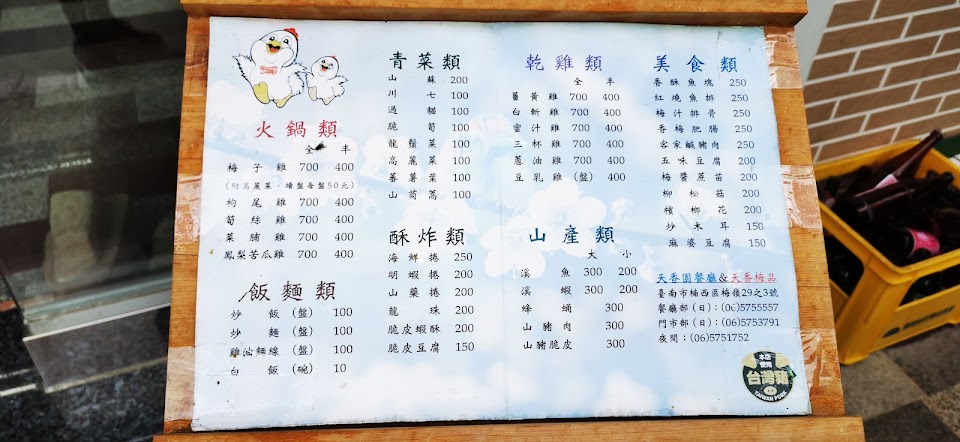 火鍋類
全 半
梅子雞 700 400
(附高麗菜，續盤每盤50元)
枸尾雞 700 400
筍絲雞 700 400
菜脯雞 700 400
鳳梨苦瓜雞 700 400
飯麵類
炒飯 (盤) 100
炒麵 (盤) 100
雞油麵線 (盤) 100
白飯 (碗) 10
青菜類
山蘇 200
川七 100
過貓 100
脆筍 100
龍鬚菜 100
高麗菜 100
蕃薯葉 100
山茼蒿 100
酥炸類
海鮮捲 250
明蝦捲 200
山藥捲 200
龍珠 200
脆皮蝦酥 200
脆皮豆腐 150
乾雞類
全 半
薑黃雞 700 400
白斬雞 700 400
蜜汁雞 700 400
三杯雞 700 400
蔥油雞 700 400
豆乳雞 (盤) 400
山產類
大 小
溪魚 300 200
溪蝦 300 200
蜂蛹 300
山豬肉 300
山豬脆皮 300
美食類
香酥魚塊 250
紅燒魚排 250
梅汁排骨 250
香梅肥腸 250
客家鹹豬肉 250
五味豆腐 200
梅醬蒸苗 200
柳松菇 200
檳榔花 200
炒木耳 150
麻婆豆腐 150
天香園餐廳&天香梅品
臺南市楠西區梅嶺29之3號
餐廳部(日)：(06)5755557
門市部(日)：(06)5753791
夜間：(06)5751752
本店
使用
台灣豬
TAIWAN PORK